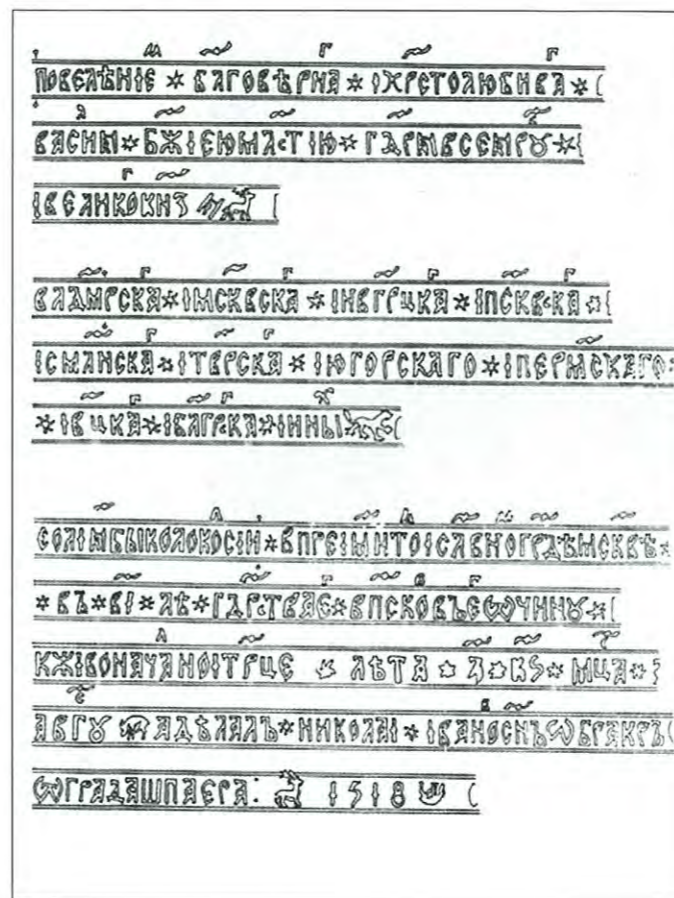 повелѣнiе * бл͠говѣрнаг * iхр͠столюбиваг *
василь * бж͠iею мл͠стiю * гд͠рьвсеѧрѹ *
iвеликогокнѕ͠
влад͠мрска * iмск͠вска * iн͠вгрцка * iпск͠вска *
iсм͠ланска * iтв͠рска * iюгорскаго * iпермскаго
* iв͠цка * iб͠лгрска * iины
солiм͠былколоколсiи * впреiм͠нитомiсл͠вномгр͠дѣмск͠вѣ *
* въ * вi * лѣ * гд͠рстваегѡ * впсковъегѡѿчинѹ *
кжiвоначалнoiтр͠це лѣта * ҂з͠ * кѕ͠ * мц͠а *
авгѹ адѣлалъ * николаi * iвановсн͠ъѡбракръ
ѿградашпаера: 1518